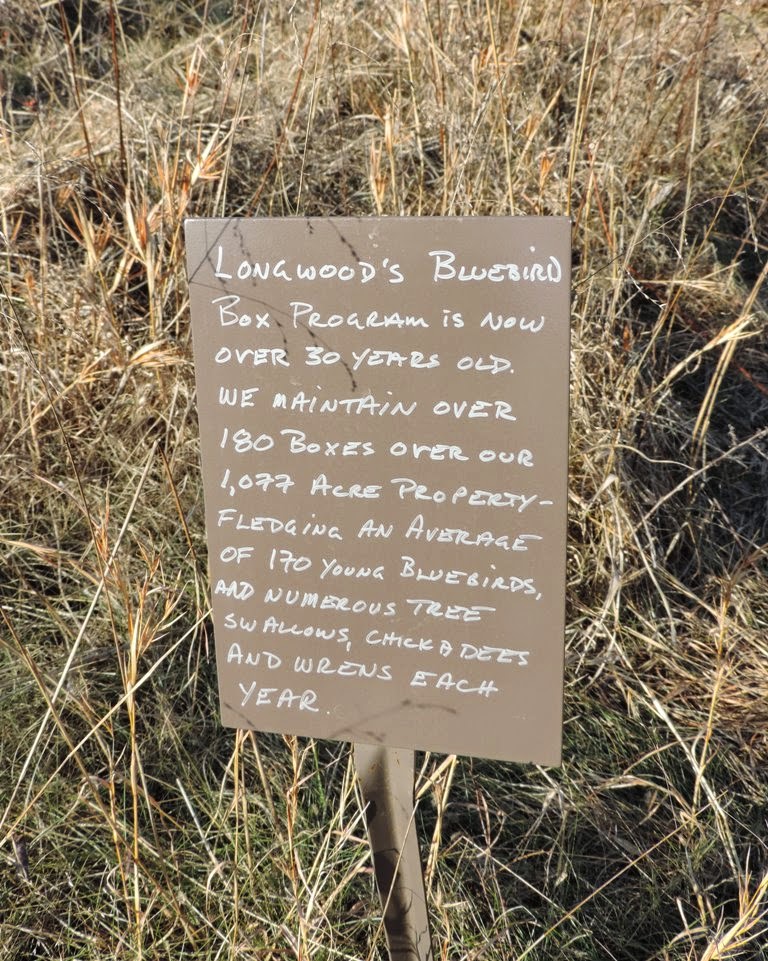 LONGWOOD'S BLUEBIRD
BOX PROGRAM IS NOW
OVER 30 YEARS OLD.
WE MAINTAIN OVER
180 BOXES OVER OUR
1,077 ACRE PROPERTY-
FLEDGING AN AVERAGE
OF 170 YOUNG BLUEBIRDS,
AND NUMEROUS TREE
SWALLOWS, CHICKADEES
AND WRENS EACH
YEAR.